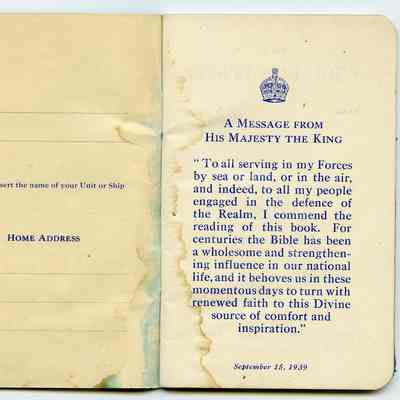 sert the name of your Unit or Ship
HOME ADDRESS
A MESSAGE FROM
HIS MAJESTY THE KING
"To all serving in my Forces
by sea or land, or in the air,
and indeed, to all my people
engaged in the defence of
the Realm, I commend the
reading of this book. For
centuries the Bible has been
a wholesome and strengthen-
ing influence in our national
life, and it behoves us in these
momentous days to turn with
renewed faith to this Divine
source of comfort and
inspiration."
September 15, 1939